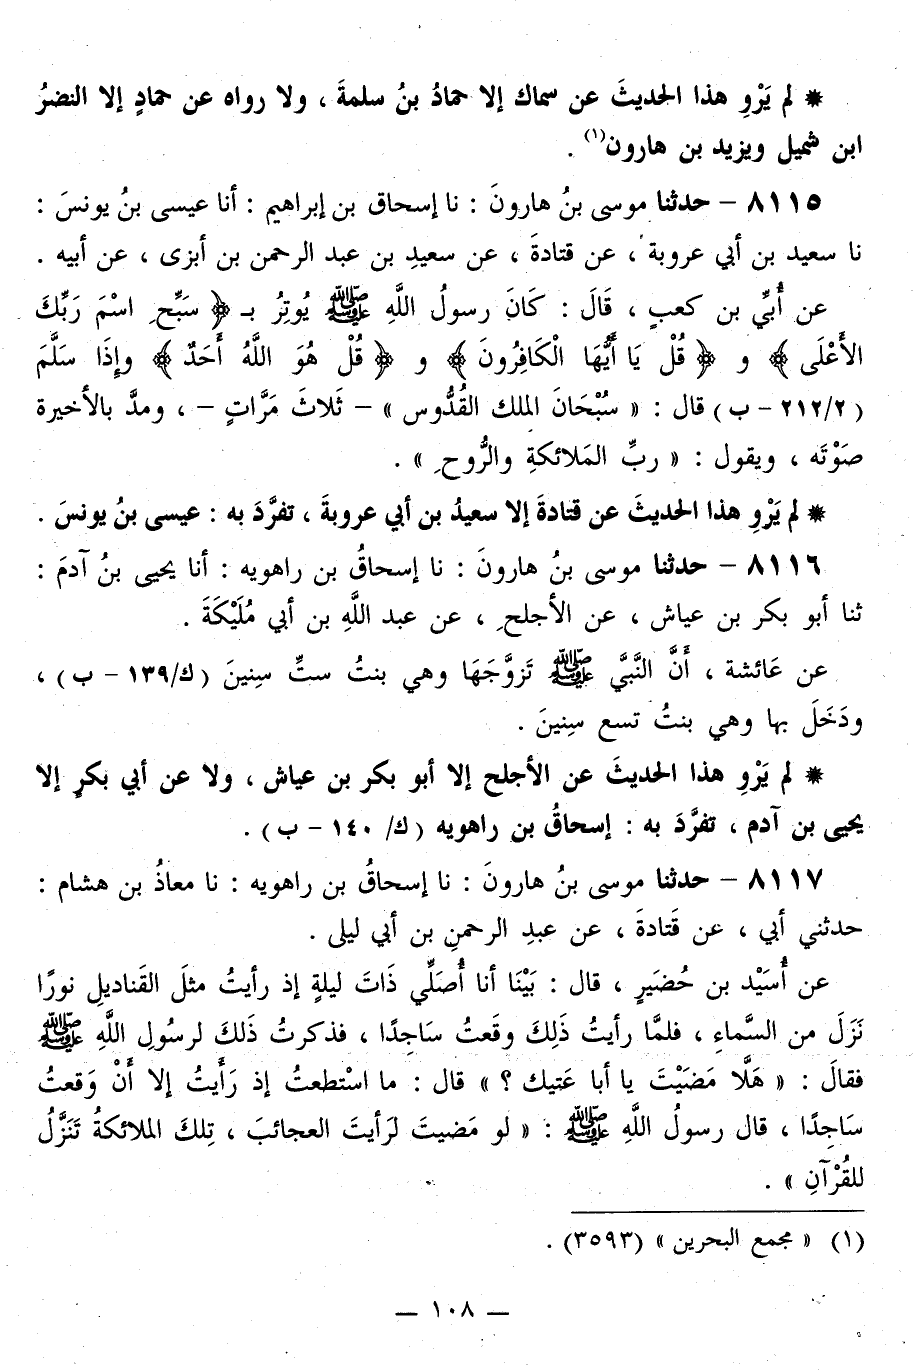 * لم يَرْوِ هذا الحديثَ عن سماك إلا حمادُ بنُ سلمةَ ، ولا رواه عن حمادٍ إلا النضرُ
ابن شميل ويزيد بن هارون(١) .
٨١١٥ – حدثنا موسى بنُ هارونَ : نا إسحاق بن إبراهيم : أنا عيسى بنُ يونسَ :
نا سعيد بن أبي عروبة ، عن قتادةَ ، عن سعيدِ بن عبد الرحمن بن أبزى ، عن أبيه .
عن أُبيِّ بن كعبٍ ، قَالَ : كَانَ رسولُ اللَّهِ ﷺ يُوتِرُ بـ ﴿ سَبِّحِ اسْمَ رَبِّكَ
الأَعْلَى ﴾ و ﴿ قُلْ يَا أَيُّهَا الْكَافِرُونَ ﴾ و ﴿ قُلْ هُوَ اللَّهُ أَحَدٌ ﴾ وإِذَا سَلَّمَ
( ٢١٢/٢ – ب ) قال : « سُبْحَانَ الملك القُدُّوس » – ثَلاثَ مَرَّاتٍ – ، ومدَّ بالأخيرة
صَوْتَه ، ويقول : « ربِّ المَلائكةِ والرُّوحِ » .
* لم يَرْوِ هذا الحديثَ عن قتادةَ إلا سعيدُ بن أبي عروبةَ ، تفرَّدَ به : عيسى بنُ يونسَ .
٨١١٦ – حدثنا موسى بنُ هارونَ : نا إسحاقُ بن راهويه : أنا يحيى بنُ آدمَ :
ثنا أبو بكر بن عياش ، عن الأجلحِ ، عن عبد اللَّهِ بن أبي مُلَيْكَةَ .
عن عَائشة ، أَنَّ النَّبيَّ ﷺ تَزوَّجَهَا وهي بنتُ ستٍّ سِنِينَ ( ك/١٣٩ – ب ) ،
ودَخَلَ بها وهي بنتُ تسع سِنِينَ .
* لم يَرْوِ هذا الحديثَ عن الأجلح إلا أبو بكر بن عياش ، ولا عن أبي بكرٍ إلا
يحيى بن آدم ، تفرَّدَ به : إسحاقُ بن راهويه ( ك/ ١٤٠ – ب ) .
٨١١٧ – حدثنا موسى بنُ هارونَ : نا إسحاقُ بن راهويه : نا معاذُ بن هشام :
حدثني أبي ، عن قَتادةَ ، عن عبدِ الرحمنِ بن أبي ليلى .
عن أُسَيْد بن حُضَيرٍ ، قال : بَيْنَا أنا أُصَلِّي ذَاتَ ليلةٍ إذ رأيتُ مثلَ القَناديلِ نورًا
نَزَلَ من السَّماءِ ، فلمَّا رأيتُ ذَلِكَ وقَعتُ سَاجدًا ، فذكرتُ ذَلكَ لرسُولِ اللَّهِ ﷺ
فقالَ : « هَلَّا مَضَيْتَ يا أبا عَتيك ؟ » قال : ما اسْتطعتُ إذ رَأَيتُ إلا أَنْ وَقعتُ
سَاجِدًا ، قال رسولُ اللَّهِ ﷺ : « لو مَضيتَ لرَأيتَ العجائبَ ، تِلكَ الملائكةُ تَنَزَّلُ
للقُرْآنِ » .
(١) « مجمع البحرين » (٣٥٩٣) .
– ١٠٨ –